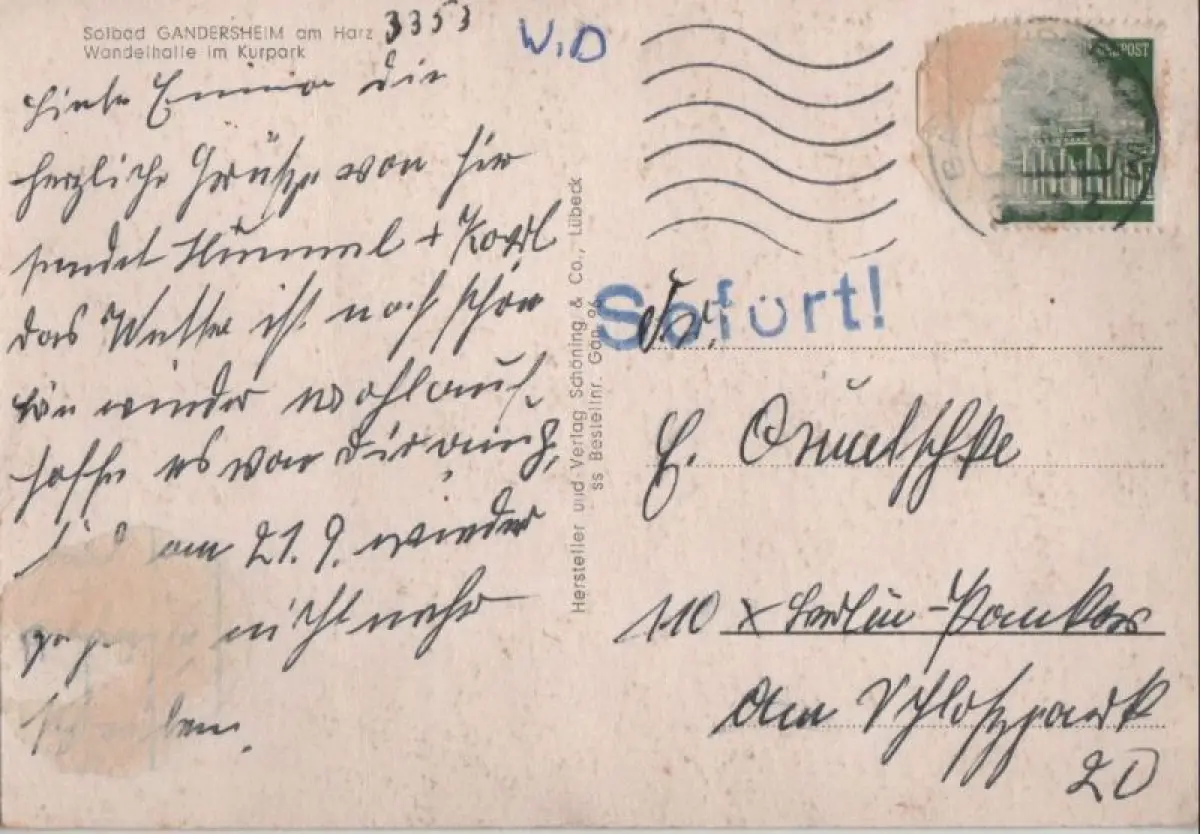 Solbad GANDERSHEIM am Harz
Wandelhalle im Kurpark
3353
W.D
Liebe Emma die
herzliche Grüße von hir
sendet Hummel + Karl
das Wetter ist noch schön
wieder wohlauf,
hoffe es von Dir auch,
am 21. 9. wieder
nicht mehr
Hersteller und Verlag Schöning & Co., Lübeck
ss Bestellnr. Gan. 96
POST
Sofort!
Fr.
E.
110 x Berlin-Pankow
Am Schloßpark
20